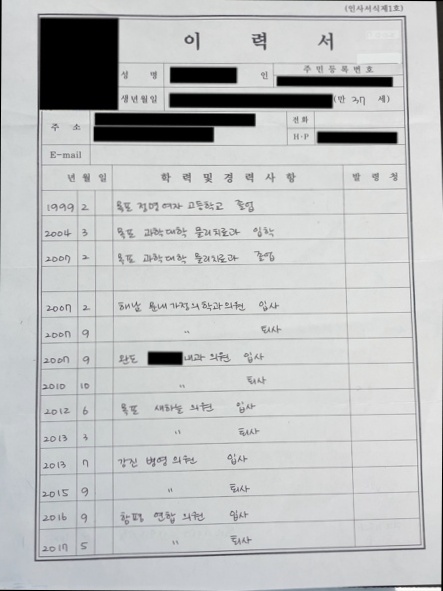 (인사서식제1호)
이 력 서
성 명 인 주민등록번호
생년월일 (만 37 세)
주 소 전화
H·P
E-mail
년 월 일 학 력 및 경 력 사 항 발 령 청
1999 2 목포 정명여자 고등학교 졸업
2004 3 목포 과학대학 물리치료과 입학
2007 2 목포 과학대학 물리치료과 졸업
2007 2 해남 문내가정의학과의원 입사
2007 9 " 퇴사
2007 9 완도 내과 의원 입사
2010 10 " 퇴사
2012 6 목포 새하늘 의원 입사
2013 3 " 퇴사
2013 7 강진 병영 의원 입사
2015 9 " 퇴사
2016 9 창평 연합 의원 입사
2017 5 " 퇴사